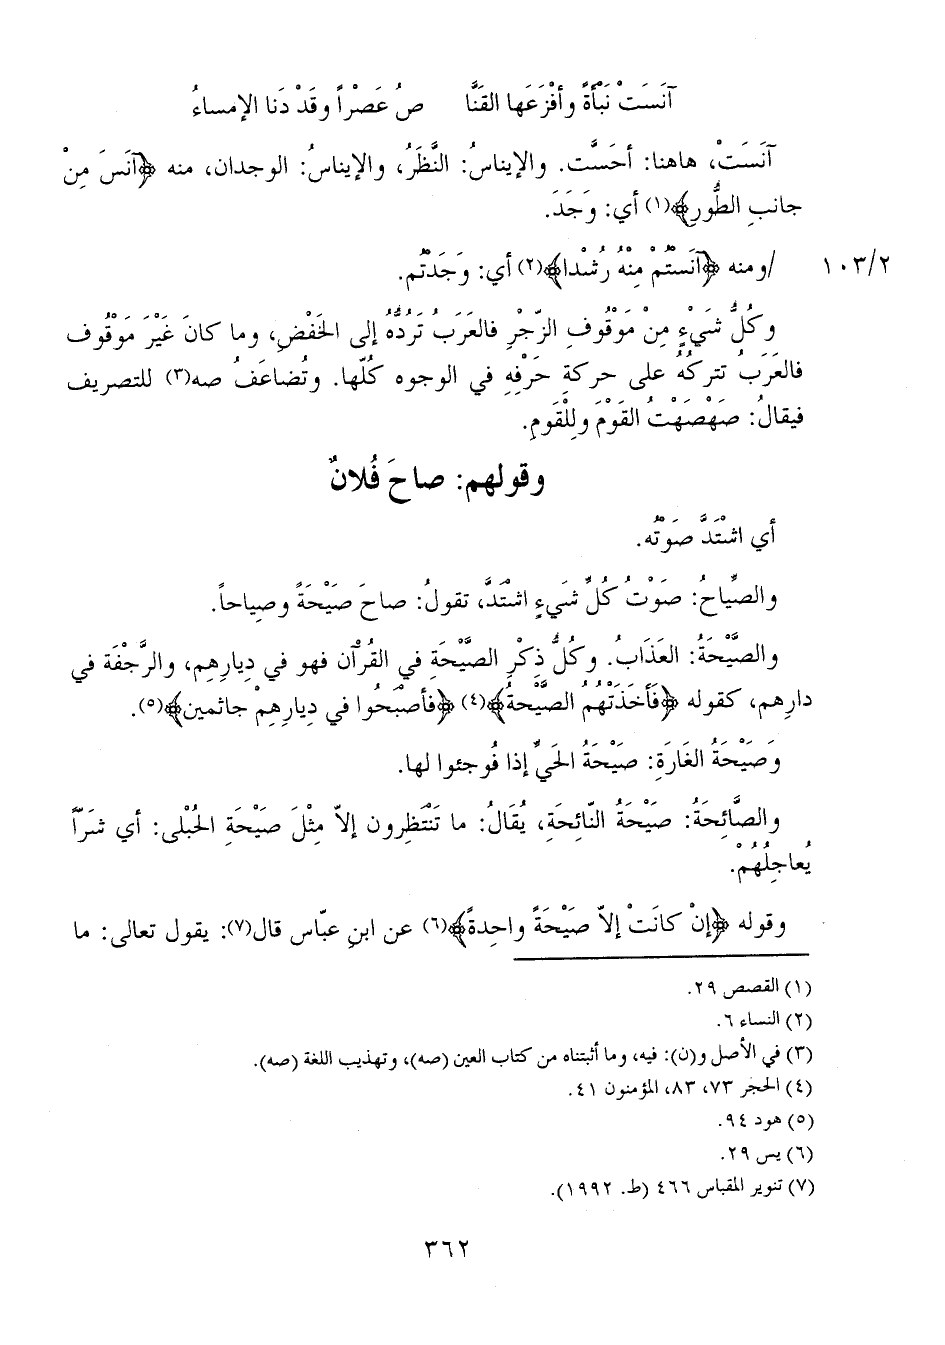 آنَسَتْ نَبْأةً وأفْزَعَها القَنَّا صُ عَصْراً وقَدْ دَنا الإمساءُ
آنَسَتْ، هاهنا: أحَسَّت. والإيناسُ: النَّظَرُ، والإيناسُ: الوجدان، منه ﴿آنَسَ مِنْ
جانبِ الطُّورِ﴾(١) أي: وَجَدَ.
١٠٣/٢ /ومنه ﴿آنَستُمْ مِنْهُ رُشْدا﴾(٢) أي: وَجَدْتُم.
وكُلُّ شَيْءٍ مِنْ مَوْقُوفِ الزّجْرِ فالعَرَبُ تَرُدُّهُ إلى الخَفْضِ، وما كانَ غَيْرَ مَوْقُوف
فالعَرَبُ تترُكُهُ على حركةِ حَرْفِهِ في الوجوه كُلّها. وتُضاعَفُ صه(٣) للتصريف
فيقالُ: صَهْصَهْتُ القَوْمَ ولِلْقَومِ.
وقولهم: صاحَ فُلانٌ
أي اشْتَدَّ صَوْتُه.
والصِّياحُ: صَوْتُ كُلِّ شَيءٍ اشْتَدَّ، تقولُ: صاحَ صَيْحَةً وصِياحاً.
والصَّيْحَةُ: العَذَابُ. وكُلُّ ذِكْرِ الصَّيْحَةِ في القُرْآن فهو في دِيارِهِم، والرَّجْفَة في
دارِهم، كقوله ﴿فَأَخَذَتْهُمُ الصَّيْحَةُ﴾(٤) ﴿فأصْبَحُوا في دِيارِهِمْ جاثمين﴾(٥).
وَصَيْحَةُ الغَارَةِ: صَيْحَةُ الحَيِّ إذا فُوجئوا لها.
والصَّائِحَةُ: صَيْحَةُ النّائِحَةِ، يُقَالُ: ما تَنْتَظِرون إلاّ مِثْلَ صَيْحَةِ الحُبْلى: أي شَرّاً
يُعاجِلُهُمْ.
وقوله ﴿إنْ كانَتْ إلاّ صَيْحَةً واحِدةً﴾(٦) عن ابنِ عبّاس قال(٧): يقول تعالى: ما
(١) القصص ٢٩.
(٢) النساء ٦.
(٣) في الأصل و(ن): فيه، وما أثبتناه من كتاب العين (صه)، وتهذيب اللغة (صه).
(٤) الحجر ٧٣، ٨٣، المؤمنون ٤١.
(٥) هود ٩٤.
(٦) يس ٢٩.
(٧) تنوير المقباس ٤٦٦ (ط. ١٩٩٢).
٣٦٢